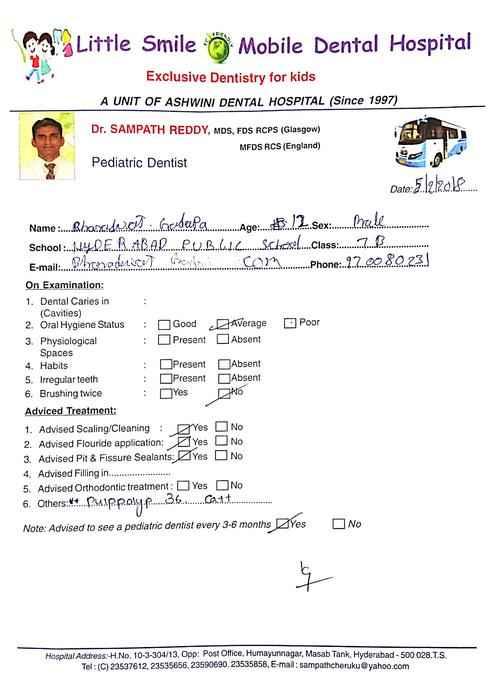 Little Smile Mobile Dental Hospital
Exclusive Dentistry for kids
A UNIT OF ASHWINI DENTAL HOSPITAL (Since 1997)
Dr. SAMPATH REDDY, MDS, FDS RCPS (Glasgow)
MFDS RCS (England)
Pediatric Dentist
Date: 5/2/2018
Name: Age: 12 Sex: Male
School: HYDERABAD PUBLIC School Class: 7 B
E-mail: com Phone: 970080231
On Examination:
1. Dental Caries in :
(Cavities)
2. Oral Hygiene Status : Good Average Poor
3. Physiological : Present Absent
Spaces
4. Habits : Present Absent
5. Irregular teeth : Present Absent
6. Brushing twice : Yes No
Adviced Treatment:
1. Advised Scaling/Cleaning : Yes No
2. Advised Flouride application: Yes No
3. Advised Pit & Fissure Sealants: Yes No
4. Advised Filling in........................
5. Advised Orthodontic treatment : Yes No
6. Others: ** Pulppolyp 36
Note: Advised to see a pediatric dentist every 3-6 months Yes No
Hospital Address:-H.No. 10-3-304/13, Opp: Post Office, Humayunnagar, Masab Tank, Hyderabad - 500 028.T.S.
Tel : (C) 23537612, 23535656, 23590690. 23535858, E-mail : sampathcheruku@yahoo.com